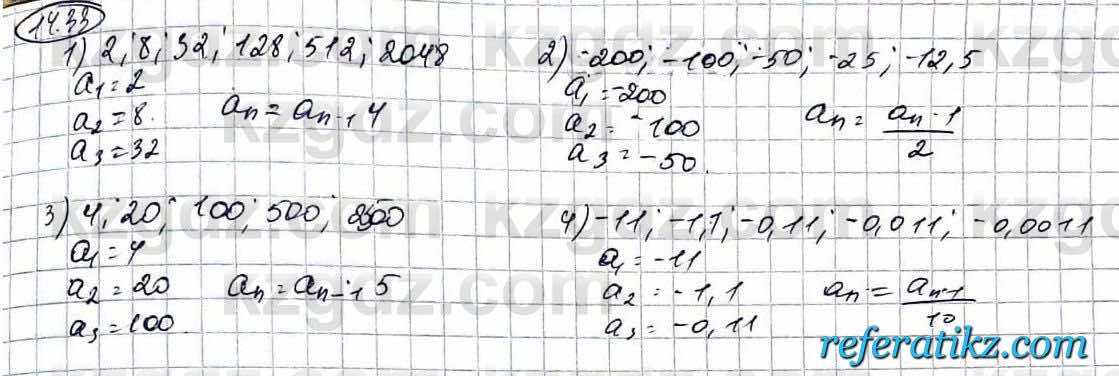 14.33
1) 2; 8; 32; 128; 512; 2048
a₁ = 2
a₂ = 8.
a₃ = 32
aₙ = aₙ₋₁ 4
2) -200; -100; -50; -25; -12,5
a₁ = -200
a₂ = -100
a₃ = -50.
aₙ = aₙ₋₁ / 2
3) 4; 20; 100; 500; 2500
a₁ = 4
a₂ = 20
a₃ = 100.
aₙ = aₙ₋₁ 5
4) -11; -1,1; -0,11; -0,011; -0,0011
a₁ = -11
a₂ = -1,1
a₃ = -0,11
aₙ = aₙ₋₁ / 10
referatikz.com